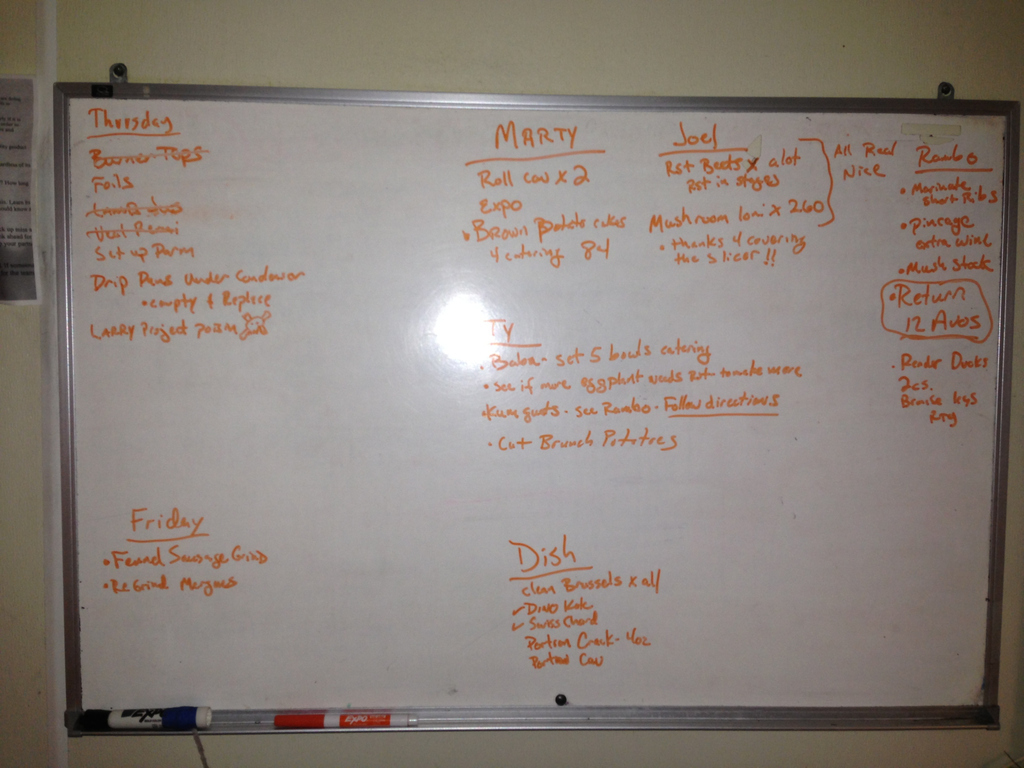 Thursday
Burner Tops
Foils
Set up Parm
Drip Pans Under
• empty & Replace
LARRY Project poism
Friday
• Fennel Sausage Grind
• ReGrind Mergues
MARTY
Roll cav x 2
Expo
• Brown Potato cakes
4 catering 84
Joel
Rst Beets x alot
Rst in stages
Mushroom x 260
• thanks 4 covering
the slicer !!
All Real
Nice
Rambo
• Marinate
Short Ribs
•
extra wine
• Mush Stock
• Return
12 Avos
• Render Ducks
2cs.
Braise legs
Ty
• - set 5 bowls catering
• see if more eggplant needs Rst to make more
• Kumquats - see Rambo - Follow directions
• Cut Brunch Potatoes
Dish
clean Brussels x all
✓ Dino Kale
✓ Swiss Chard
Portion - 4oz
Portion Cav
EXPO
EXPO